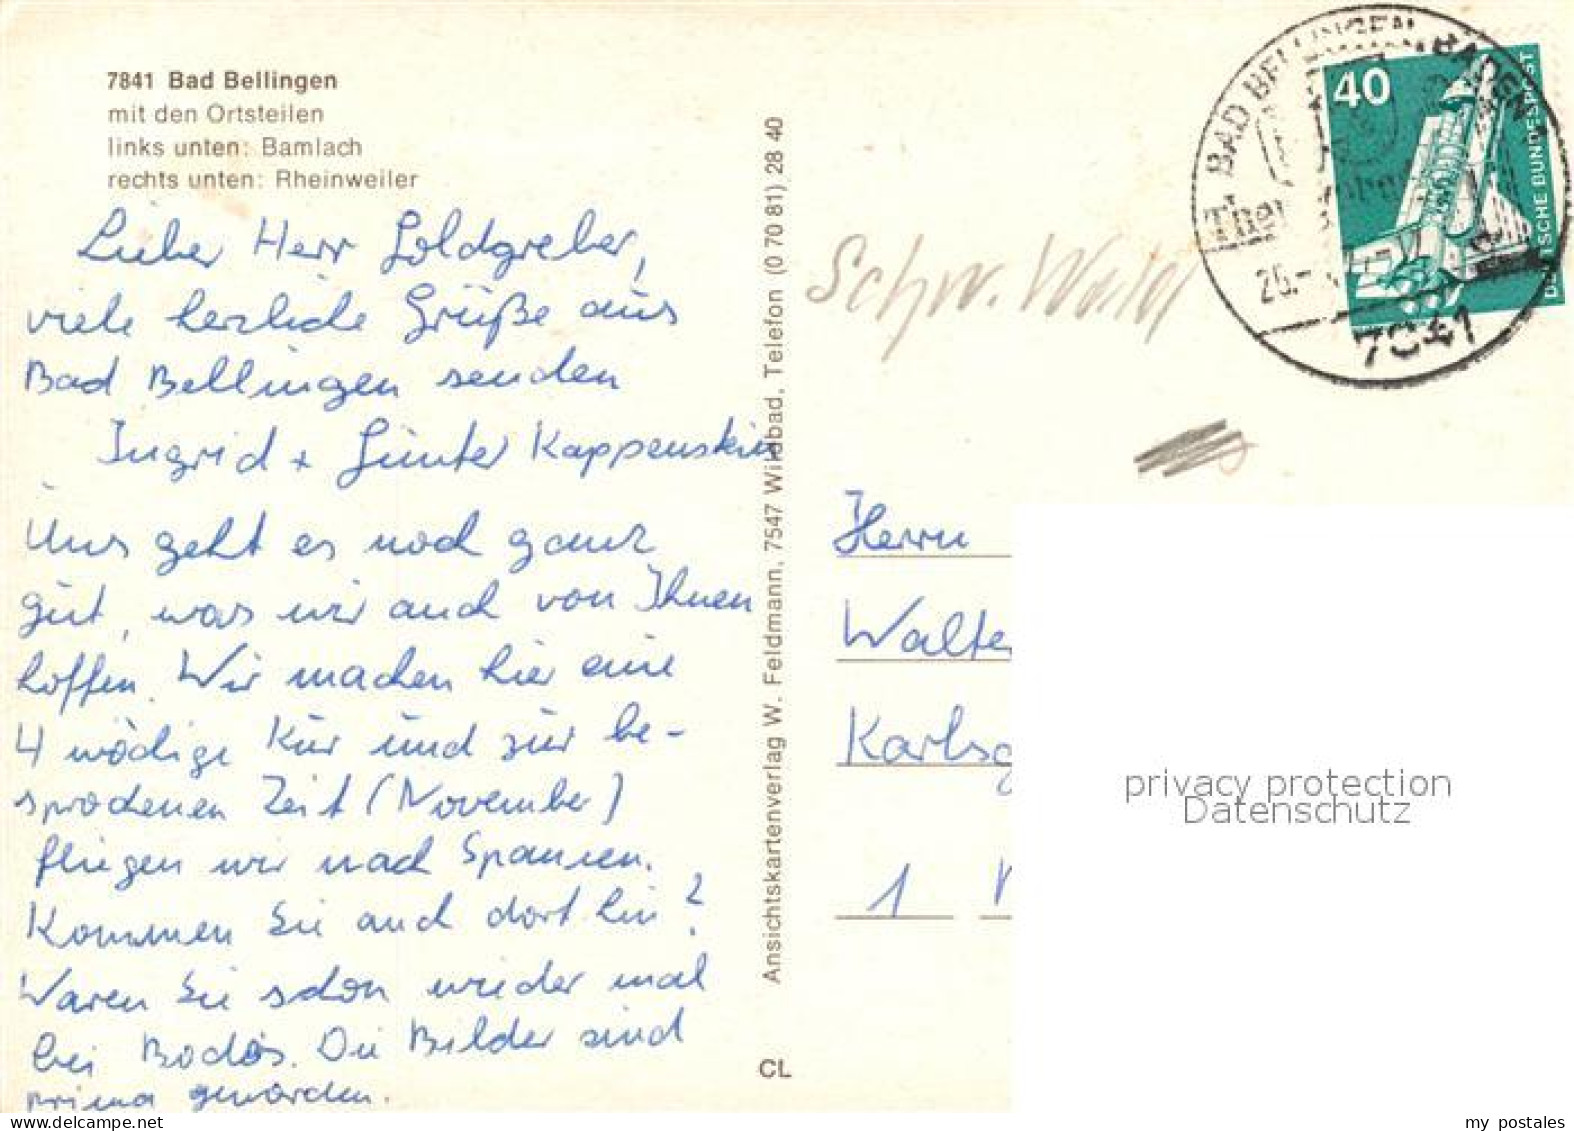 7841 Bad Bellingen
mit den Ortsteilen
links unten: Bamlach
rechts unten: Rheinweiler
Lieber Herr Goldgreber,
viele herzliche Grüße aus
Bad Bellingen senden
Ingrid + Günter Kappenstein
Uns geht es noch ganz
gut, was wir auch von Ihnen
hoffen. Wir machen hier eine
4 wöchige Kur und zur be-
sprochenen Zeit (November)
fliegen wir nach Spanien.
Kommen Sie auch dort hin?
Waren Sie schon wieder mal
bei Bodos. Die Bilder sind
prima geworden.
Ansichtskartenverlag W. Feldmann, 7547 Wildbad, Telefon (0 70 81) 28 40
CL
Schw. Wald
BAD BELLINGEN, BADEN
7841
40
DEUTSCHE BUNDESPOST
Herrn
Walte
Karls
1
privacy protection
Datenschutz
my postales